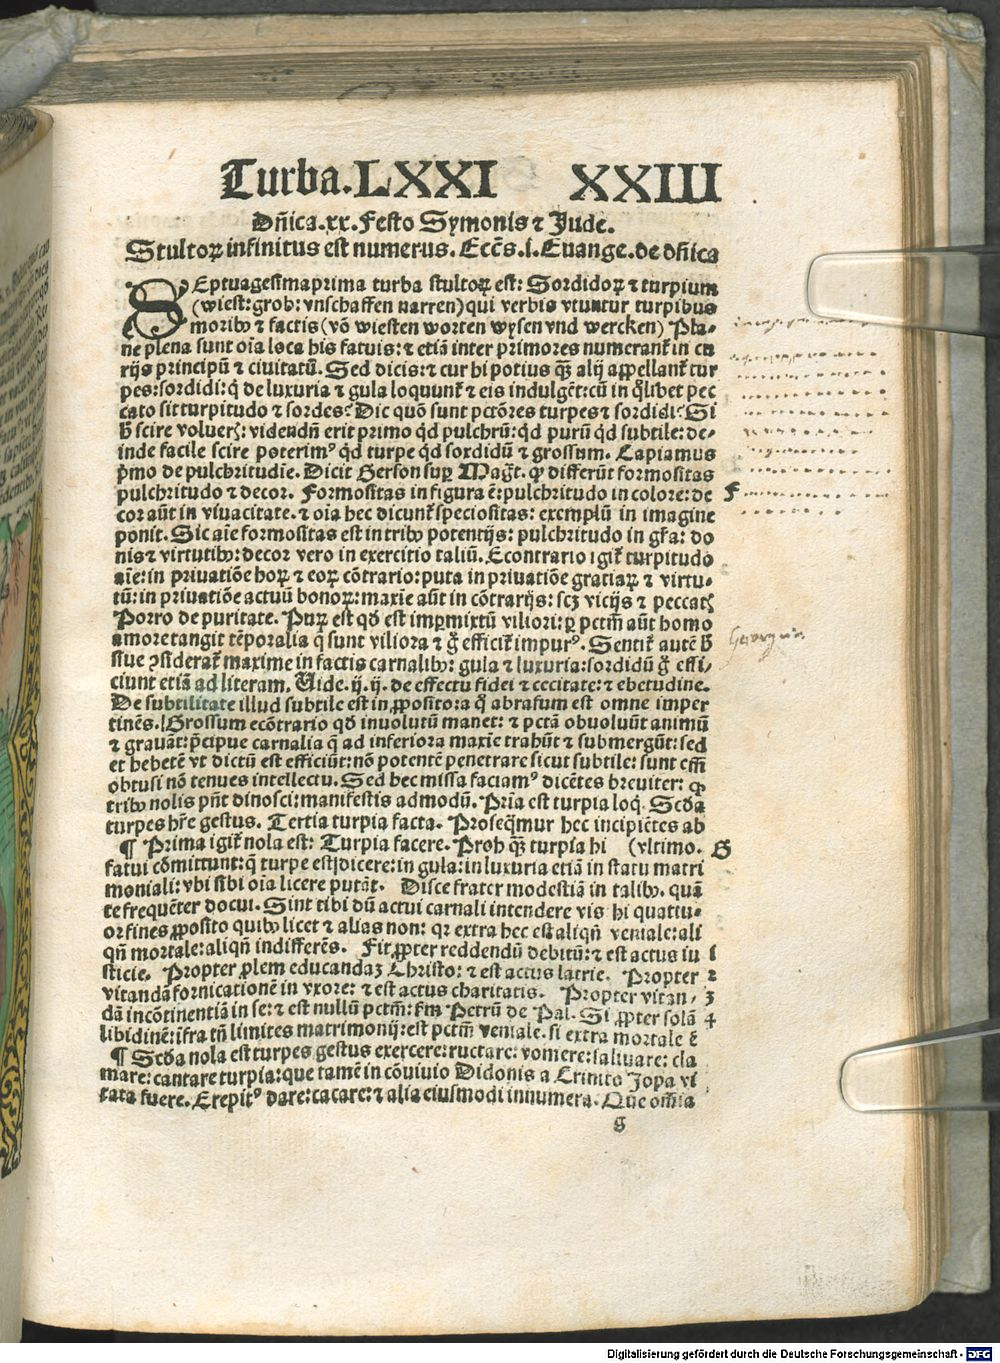 Turba.LXXI XXIII
Dñica.xx.Festo Symonis ⁊ Jude.
Stultoꝝ infinitus est numerus. Eccēs.i.Euange.de dñica
SEptuagesimaprima turba stultoꝝ est: Sordidoꝝ ⁊ turpium
(wiest: grob: vnschaffen narren) qui verbis vtuntur turpibus
moribꝰ ⁊ factis (võ wiesten worten wysen vnd wercken) Pla-
ne plena sunt oĩa loca his fatuis: ⁊ etiã inter primores numeranť in cu
rijs principũ ⁊ ciuitatũ. Sed dicis: ⁊ cur hi potius q̃ꝫ alij appellanť tur
pes: sordidi: q̇ de luxuria ⁊ gula loquunť ⁊ eis indulgẽt: cũ in q̃libet pec
cato sit turpitudo ⁊ sordes? Dic quõ sunt pctõres turpes ⁊ sordidi? Si
ḃ scire voluerꝭ: videndñ erit primo qd pulchrũ: qd purũ qd subtile: de-
inde facile scire poterimꝰ qd turpe qd sordidũ ⁊ grossum. Capiamus
p̃mo de pulchritudĩe. Dicit Gerson suꝑ Mag̃t. ꝙ differũt formositas
pulchritudo ⁊ decor. Formositas in figura ẽ: pulchritudo in colore: de F
cor aũt in viuacitate. ⁊ oĩa hec dicunť speciositas: exemplũ in imagine
ponit. Sic aĩe formositas est in tribꝰ potentijs: pulchritudo in gr̃a: do
nis ⁊ virtutibꝰ: decor vero in exercitio taliũ. Econtrario igiť turpitudo
aĩe: in priuatiõe hoꝝ ⁊ eoꝝ cõtrario: puta in priuatiõe gratiaꝝ ⁊ virtu-
tũ: in priuatiõe actuũ bonoꝝ: maxĩe aũt in cõtrarijs: scꝫ vicijs ⁊ peccatꝭ
Porro de puritate. Puꝝ est qd est impermixtũ viliori: ꝑ pctm̃ aũt homo
amore tangit tẽporalia q̃ sunt viliora ⁊ g̊ efficiť impurꝰ. Sentiť autẽ ḃ
ꝯsiderať maxime in factis carnalibꝰ: gula ⁊ luxuria: sordidũ g̊ effi-
ciunt etiã ad literam. Uide. ij. ij. de effectu fidei ⁊ cecitate: ⁊ ebetudine.
De subtilitate illud subtile est in ꝓposito: a q̊ abrasum est omne imper
tinẽs. Grossum ecõtrario qd inuolutũ manet: ⁊ pctã obuoluũt animũ
⁊ grauãt: p̃cipue carnalia q̃ ad inferiora maxĩe trahũt ⁊ submergũt: sed
et hebetẽ vt dictũ est efficiũt: nõ potentẽ penetrare sicut subtile: sunt em̃
obtusi nõ tenues intellectu. Sed hec missa faciamꝰ dicẽtes breuiter: ꝙ
tribꝰ nolis pñt dinosci: manifestis admodũ. Prĩa est turpia loq̇. Scḋa
turpes hr̃e gestus. Tertia turpia facta. Proseq̃mur hec incipiẽtes ab
¶ Prima igiť nola est: Turpia facere. Proh q̃ꝫ turpia hi (vltimo. G
fatui cõmittunt: q̃ turpe est dicere: in gula: in luxuria etiã in statu matri
moniali: vbi sibi oĩa licere putãt. Disce frater modestiã in talibꝰ. quã
te frequẽter docui. Sint tibi dũ actui carnali intendere vis hi quatiu-
or fines ꝓposito quibꝰ licet ⁊ alias non: qr extra hec est aliqñ veniale: ali
qñ mortale: aliqñ indifferẽs. Fit ꝓpter reddendũ debitũ: ⁊ est actus iu 1
sticie. Propter ꝓlem educandaꝫ Christo: ⁊ est actus latrie. Propter 2
vitandã fornicationẽ in vxore: ⁊ est actus charitatis. Propter vitan- 3
dã incõtinentiã in se: ⁊ est nullũ pctm̃: ẜm Petrũ de Pal. Si ꝓpter solã 4
libidinẽ: ĩfra tñ limites matrimonij: est pctm̃ veniale. si extra mortale ẽ
¶ Scḋa nola est turpes gestus exercere: ructare: vomere: saliuare: cla
mare: cantare turpia: que tamẽ in cõuiuio Didonis a Crinito Jopa vi
tata fuere. Crepitꝰ dare: cacare: ⁊ alia eiusmodi innumera. Que omĩa
g
Digitalisierung gefördert durch die Deutsche Forschungsgemeinschaft - DFG